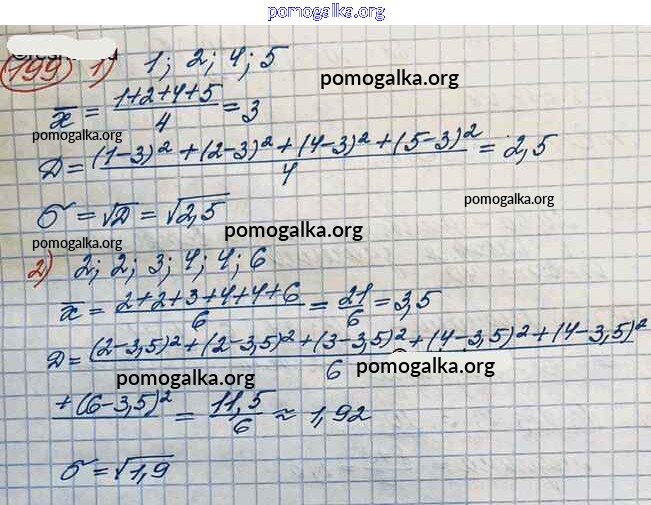 pomogalka.org
199 1) 1; 2; 4; 5
pomogalka.org
x̅ = (1+2+4+5)/4 = 3
pomogalka.org
D = ((1-3)² + (2-3)² + (4-3)² + (5-3)²)/4 = 2,5
pomogalka.org
σ = √D = √2,5
pomogalka.org
pomogalka.org
2) 2; 2; 3; 4; 4; 6
x̅ = (2+2+3+4+4+6)/6 = 21/6 = 3,5
D = (2-3,5)² + (2-3,5)² + (3-3,5)² + (4-3,5)² + (4-3,5)²
6
pomogalka.org
pomogalka.org
+ (6-3,5)² = 11,5/6 ≈ 1,92
σ = √1,9